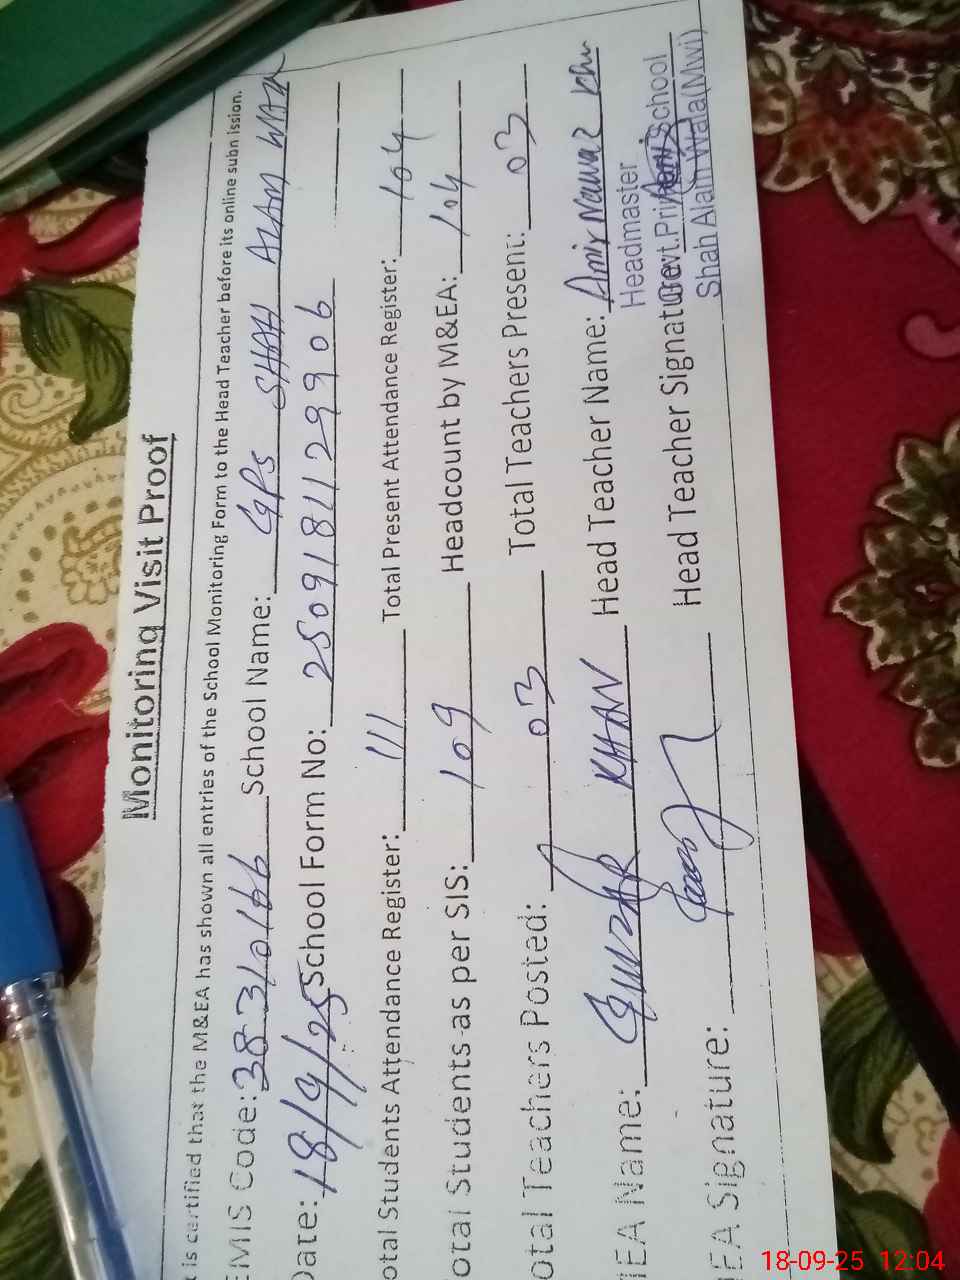 Monitoring Visit Proof
t is certified that the M&EA has shown all entries of the School Monitoring Form to the Head Teacher before its online submission.
EMIS Code: 38310166 School Name: GPS SHAH ALAM WALA
Date: 18/9/25 School Form No: 2509181129906
otal Students Attendance Register: 111 Total Present Attendance Register: 104
otal Students as per SIS: 109 Headcount by M&EA: 104
otal Teachers Posted: 03 Total Teachers Present: 03
IEA Name: Gulzar KHAN Head Teacher Name: Amir Nawaz Khn
IEA Signature: Head Teacher Signature
Headmaster
Govt.Primary School
Shah Alam Wala(Mwi)
18-09-25 12:04